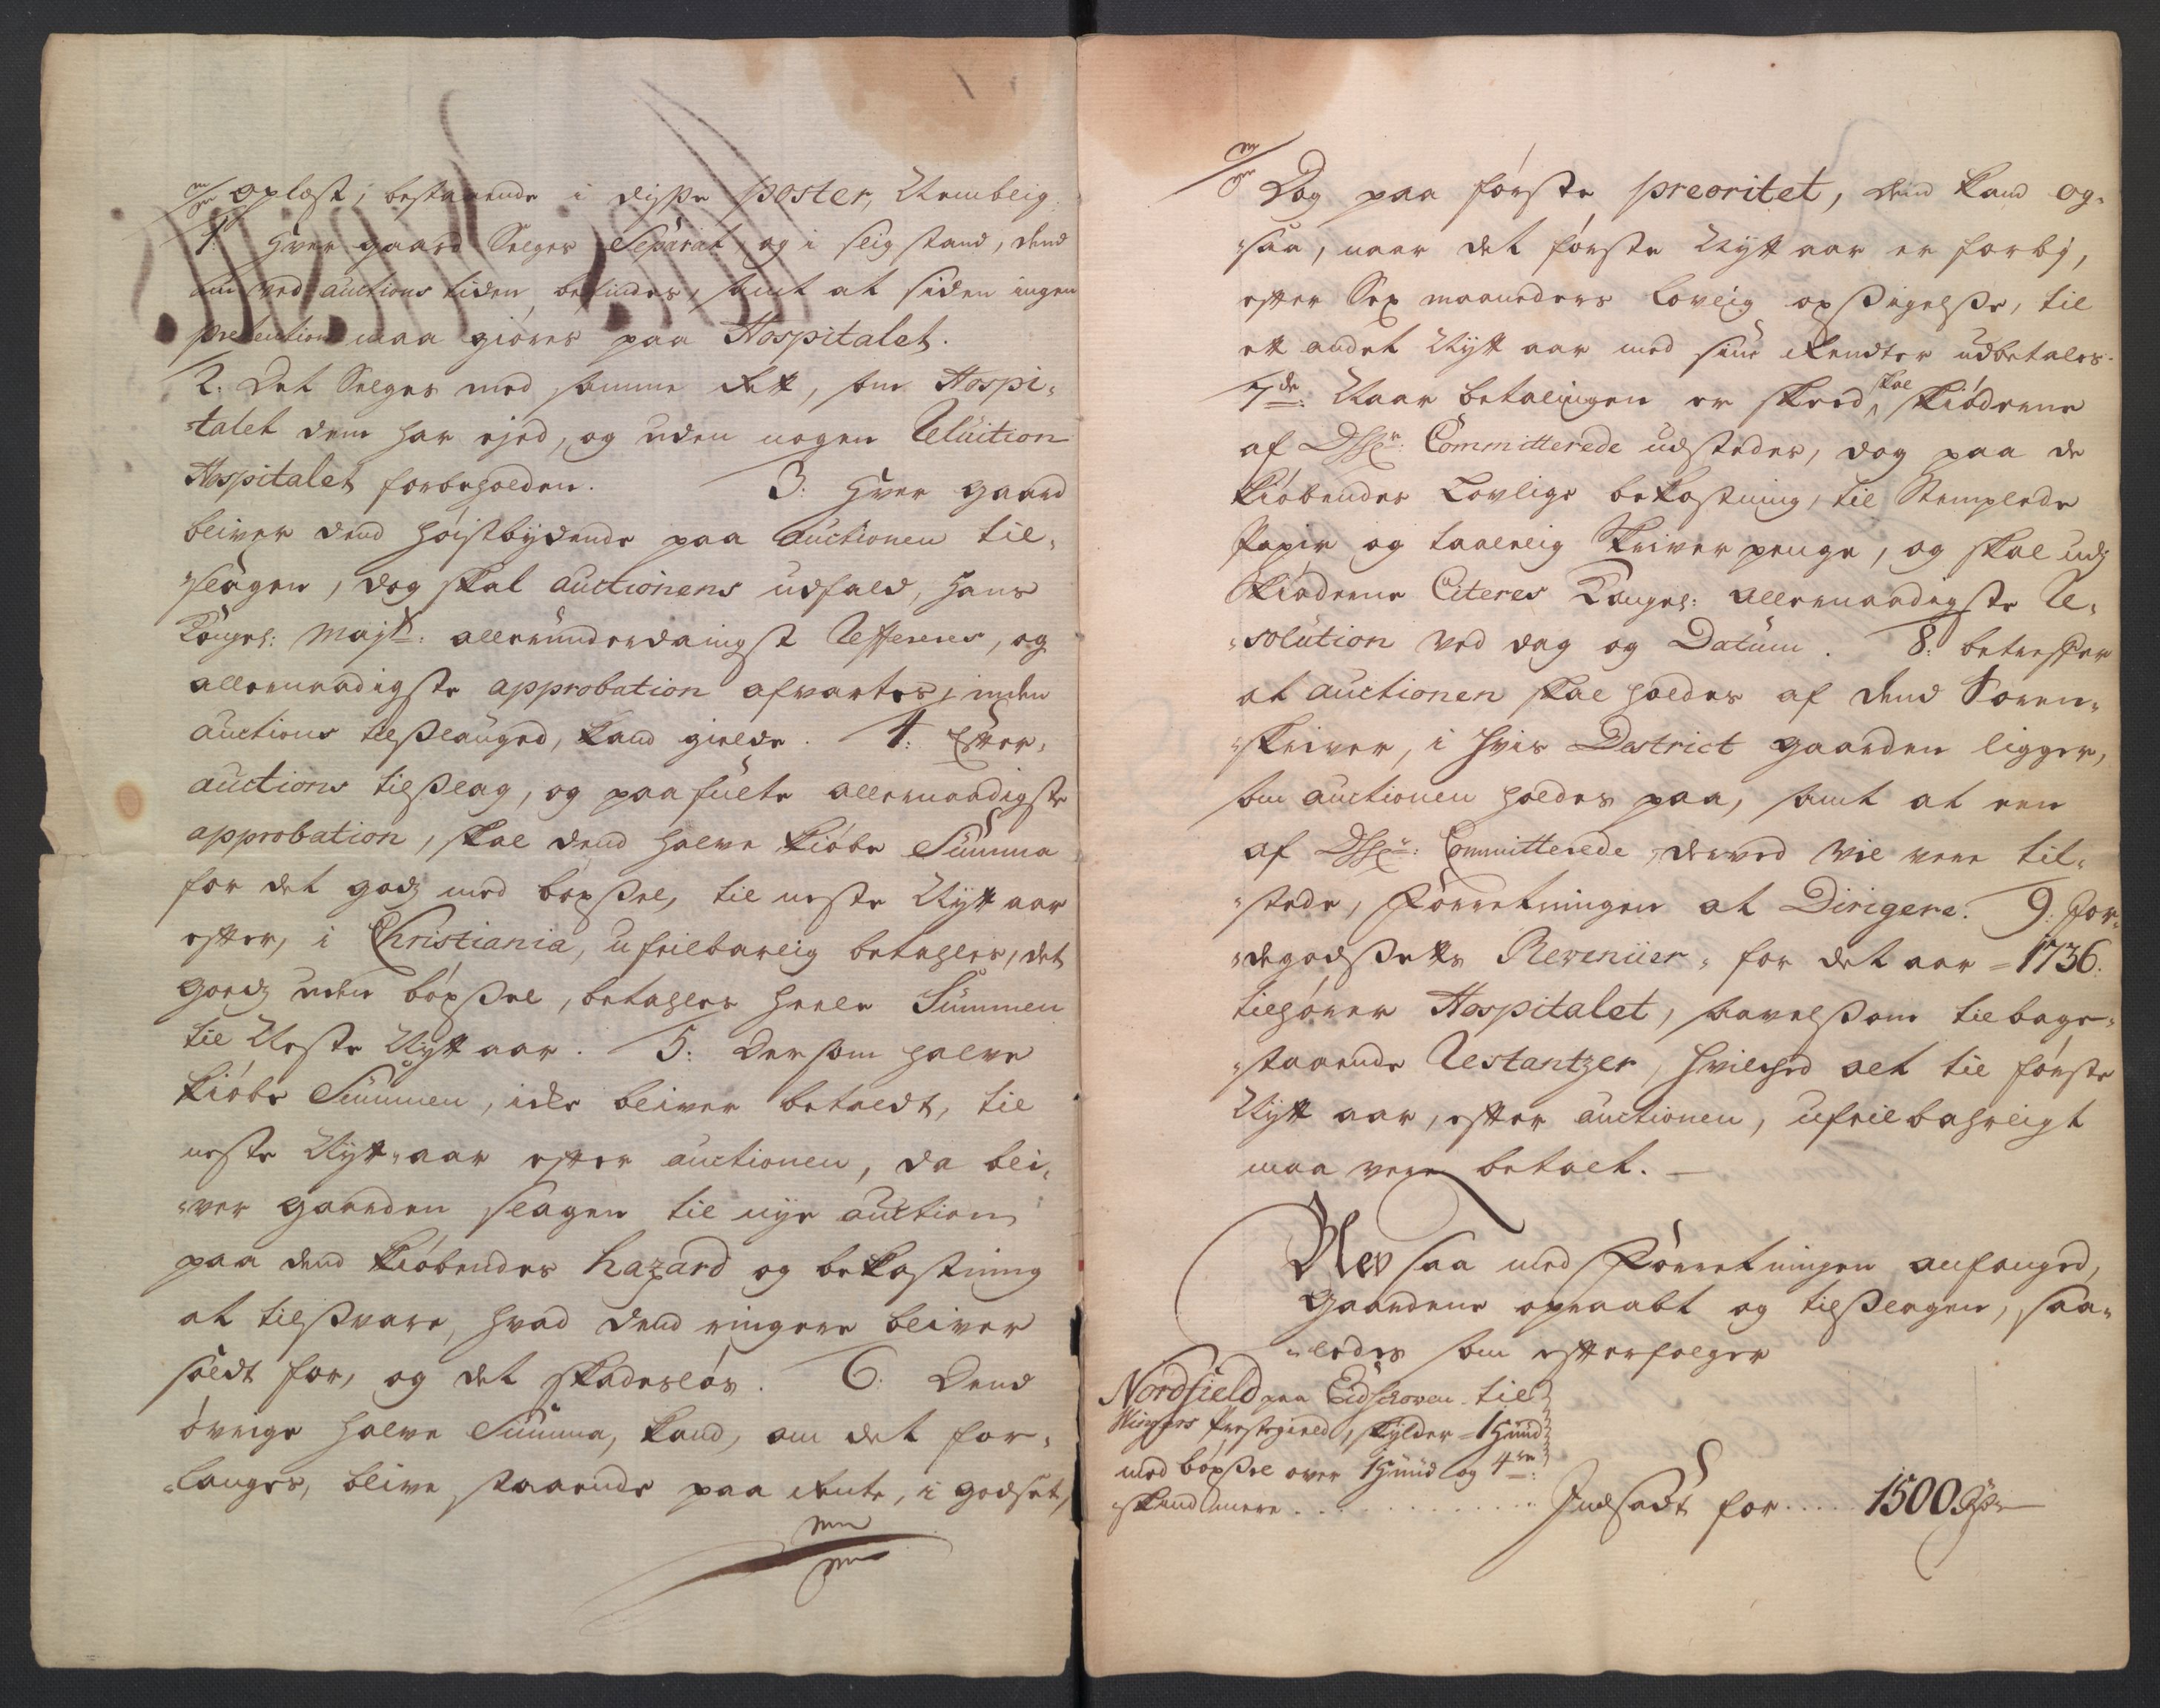 oplæst, bestaaende i disse poster, Nemblig
1. Hver gaard Selges Separat, og i slig stand, dend
nu ved auctions tiden befindes, samt at siden ingen
prætention maa giöres paa Hospitalet.
2. Det Selges med samme Rett, som Hospi-
-talet dem har ejed, og uden nogen Eviction
Hospitalet forbeholden. 3: Hver gaard
bliver dend höistbydende paa auctionen til-
-slagen, dog skal auctionens udfald, Hans
Kongel: Majts: allerunderdanigst Refereres, og
allernaadigste approbation afvartes, inden
auctions tilslauged, kand gielde. 4: Efter
auctions tilslag, og paafulte allernaadigste
approbation, skal dend halve kiöbe Summa
for det godz med böxsel, til neste Nytt aar
efter, i Christiania, ufeilbarlig betahles, det
goedz uden böxsel, betahles heele Summen
til Neste Nytt aar. 5: Dersom halve
kiöbe Summen, icke bliver betaldt, til
neste Nytt-aar efter auctionen, da bli-
-ver gaarden slagen til nye auction
paa dend kiöbendes hazard og bekostning
at tilsvare, hvad dend ringere bliver
soldt for, og det skadeslös. 6: Dend
övrige halve Summa, kand, om det for-
-langes, blive staaende paa Rente, i godset,
Dog paa förste preoritet, dend kand og-
-saa, naar det förste Nytt aar er forbj,
efter Sex maaneders lovlig opsigelse, til
ett andet Nytt aar med sine Rendter udbetales.
7de: Naar betalingen er skeed, skal skiöderne
af Committerede udstædes, dog paa de
kiöbendes Lovlige bekostning, til Stemplede
Papir og taalelig Skriver penge, og skal udj
Skiöderne Citeres Kongel: allernaadigste Re-
-solution ved dag og Datum. 8: betreffer
at auctionen skal holdes af dend Soren-
-skriver, i hvis District gaarden ligger,
som auctionen holdes paa, samt at een
af Committerede, derved vil vere til-
-stede, Forretningen at Dirigere. 9: Jor-
-degodsetts Revenüer, for det aar 1736:
tilhörer Hospitalet, saavelsom tilbage-
-staaende Restantzer, hvilched alt til förste
Nytt aar, efter auctionen, ufeilbahrligt
maa vere betalt.
Blev saa med Forretningen anfanged,
Gaardene opraabt og tilslagen, saa-
-ledes som efterfölger
Nordfield paa Eidschoven til
Wingers Prestegield, skylder 1 Hund
med böxsel over 1 Hund og 4re
skind mere . . . . . . Indsadt for .... 1500 Rdr